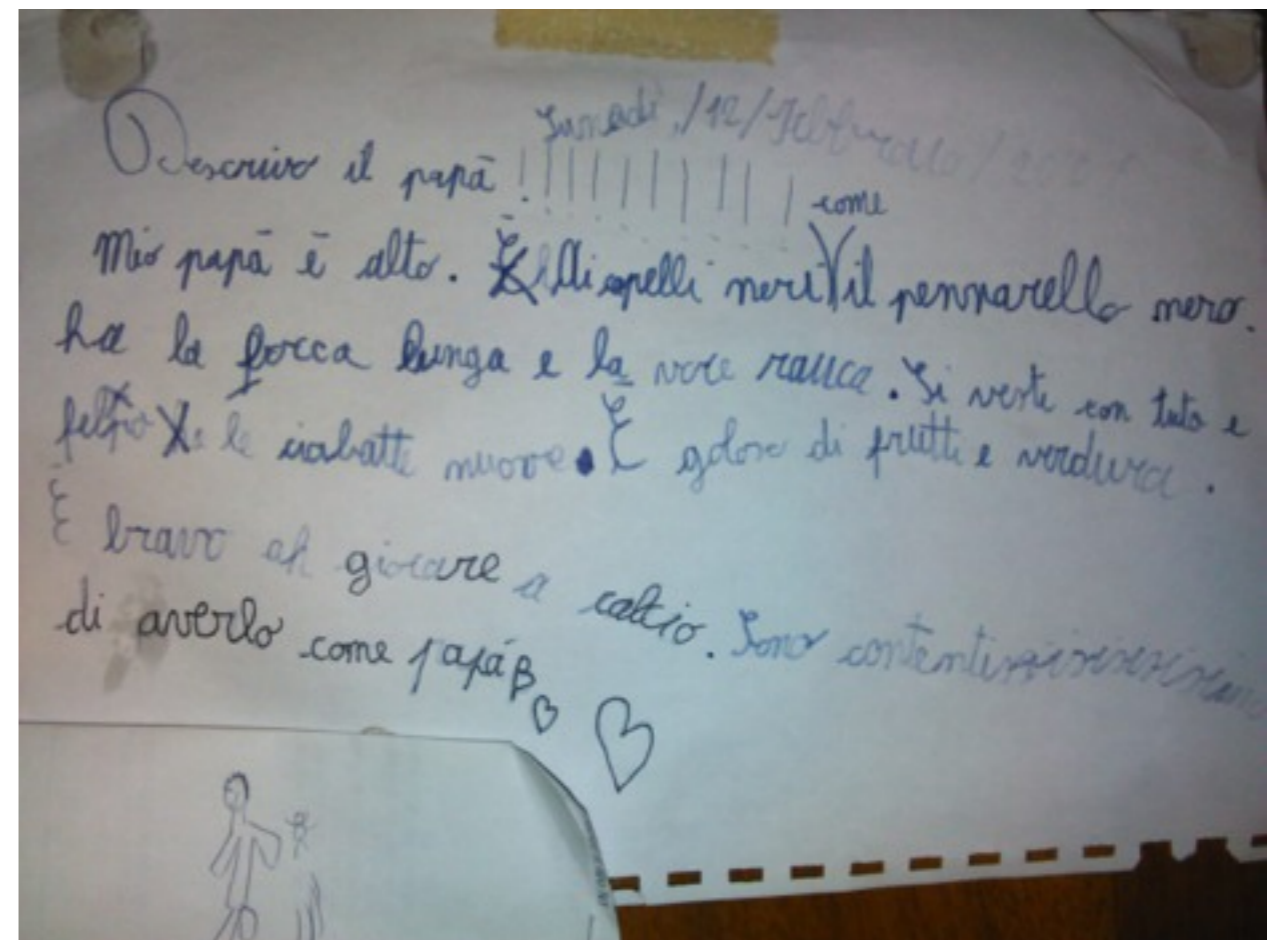 Lunedì,/12/Febbraio/
Descrivo il papà!!!!!!!!!!
come
Mio papà è alto. i capelli neri il pennarello nero.
ha la bocca lunga e la voce rauca. Si veste con tuta e
felpa e le ciabatte nuove. È goloso di frutti e verdura.
È bravo ah giocare a calcio. Sono
di averlo come papà